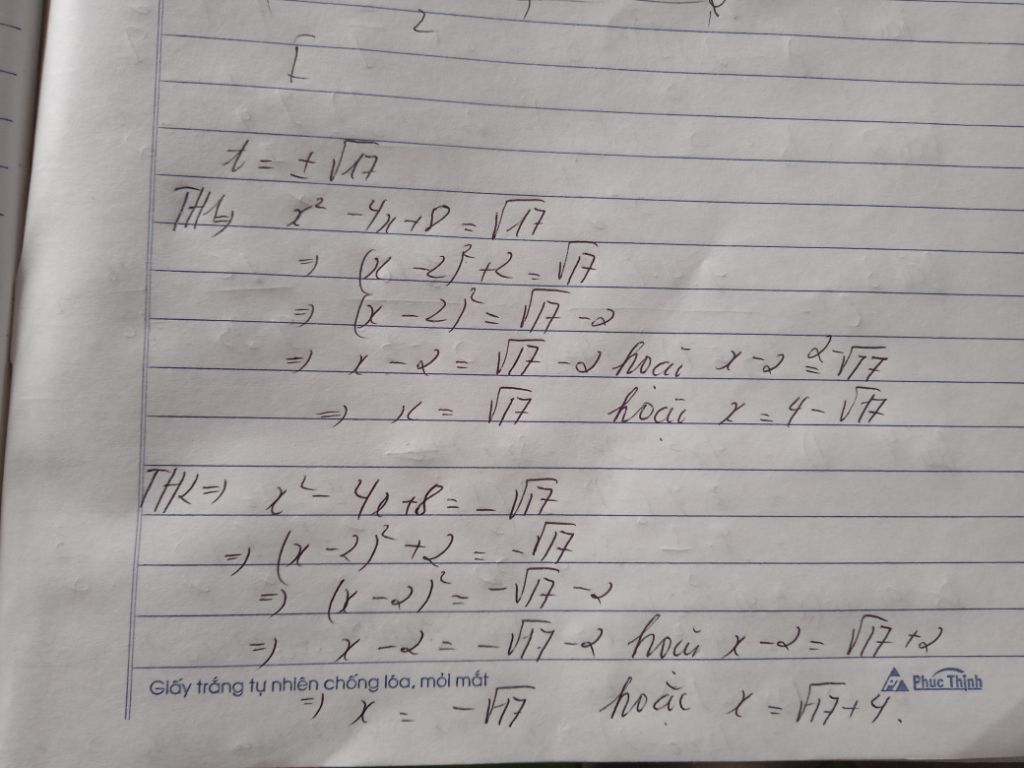 2
t = ± √17
TH1 ⇒ x² - 4x + 8 = √17
⇒ (x - 2)² + 2 = √17
⇒ (x - 2)² = √17 - 2
⇒ x - 2 = √17 - 2 hoặc x - 2 = 2 - √17
⇒ x = √17 hoặc x = 4 - √17
TH2 ⇒ x² - 4x + 8 = - √17
⇒ (x - 2)² + 2 = - √17
⇒ (x - 2)² = - √17 - 2
⇒ x - 2 = - √17 - 2 hoặc x - 2 = √17 + 2
Giấy trắng tự nhiên chống lóa, mỏi mắt Phúc Thịnh
⇒ x = - √17 hoặc x = √17 + 4.